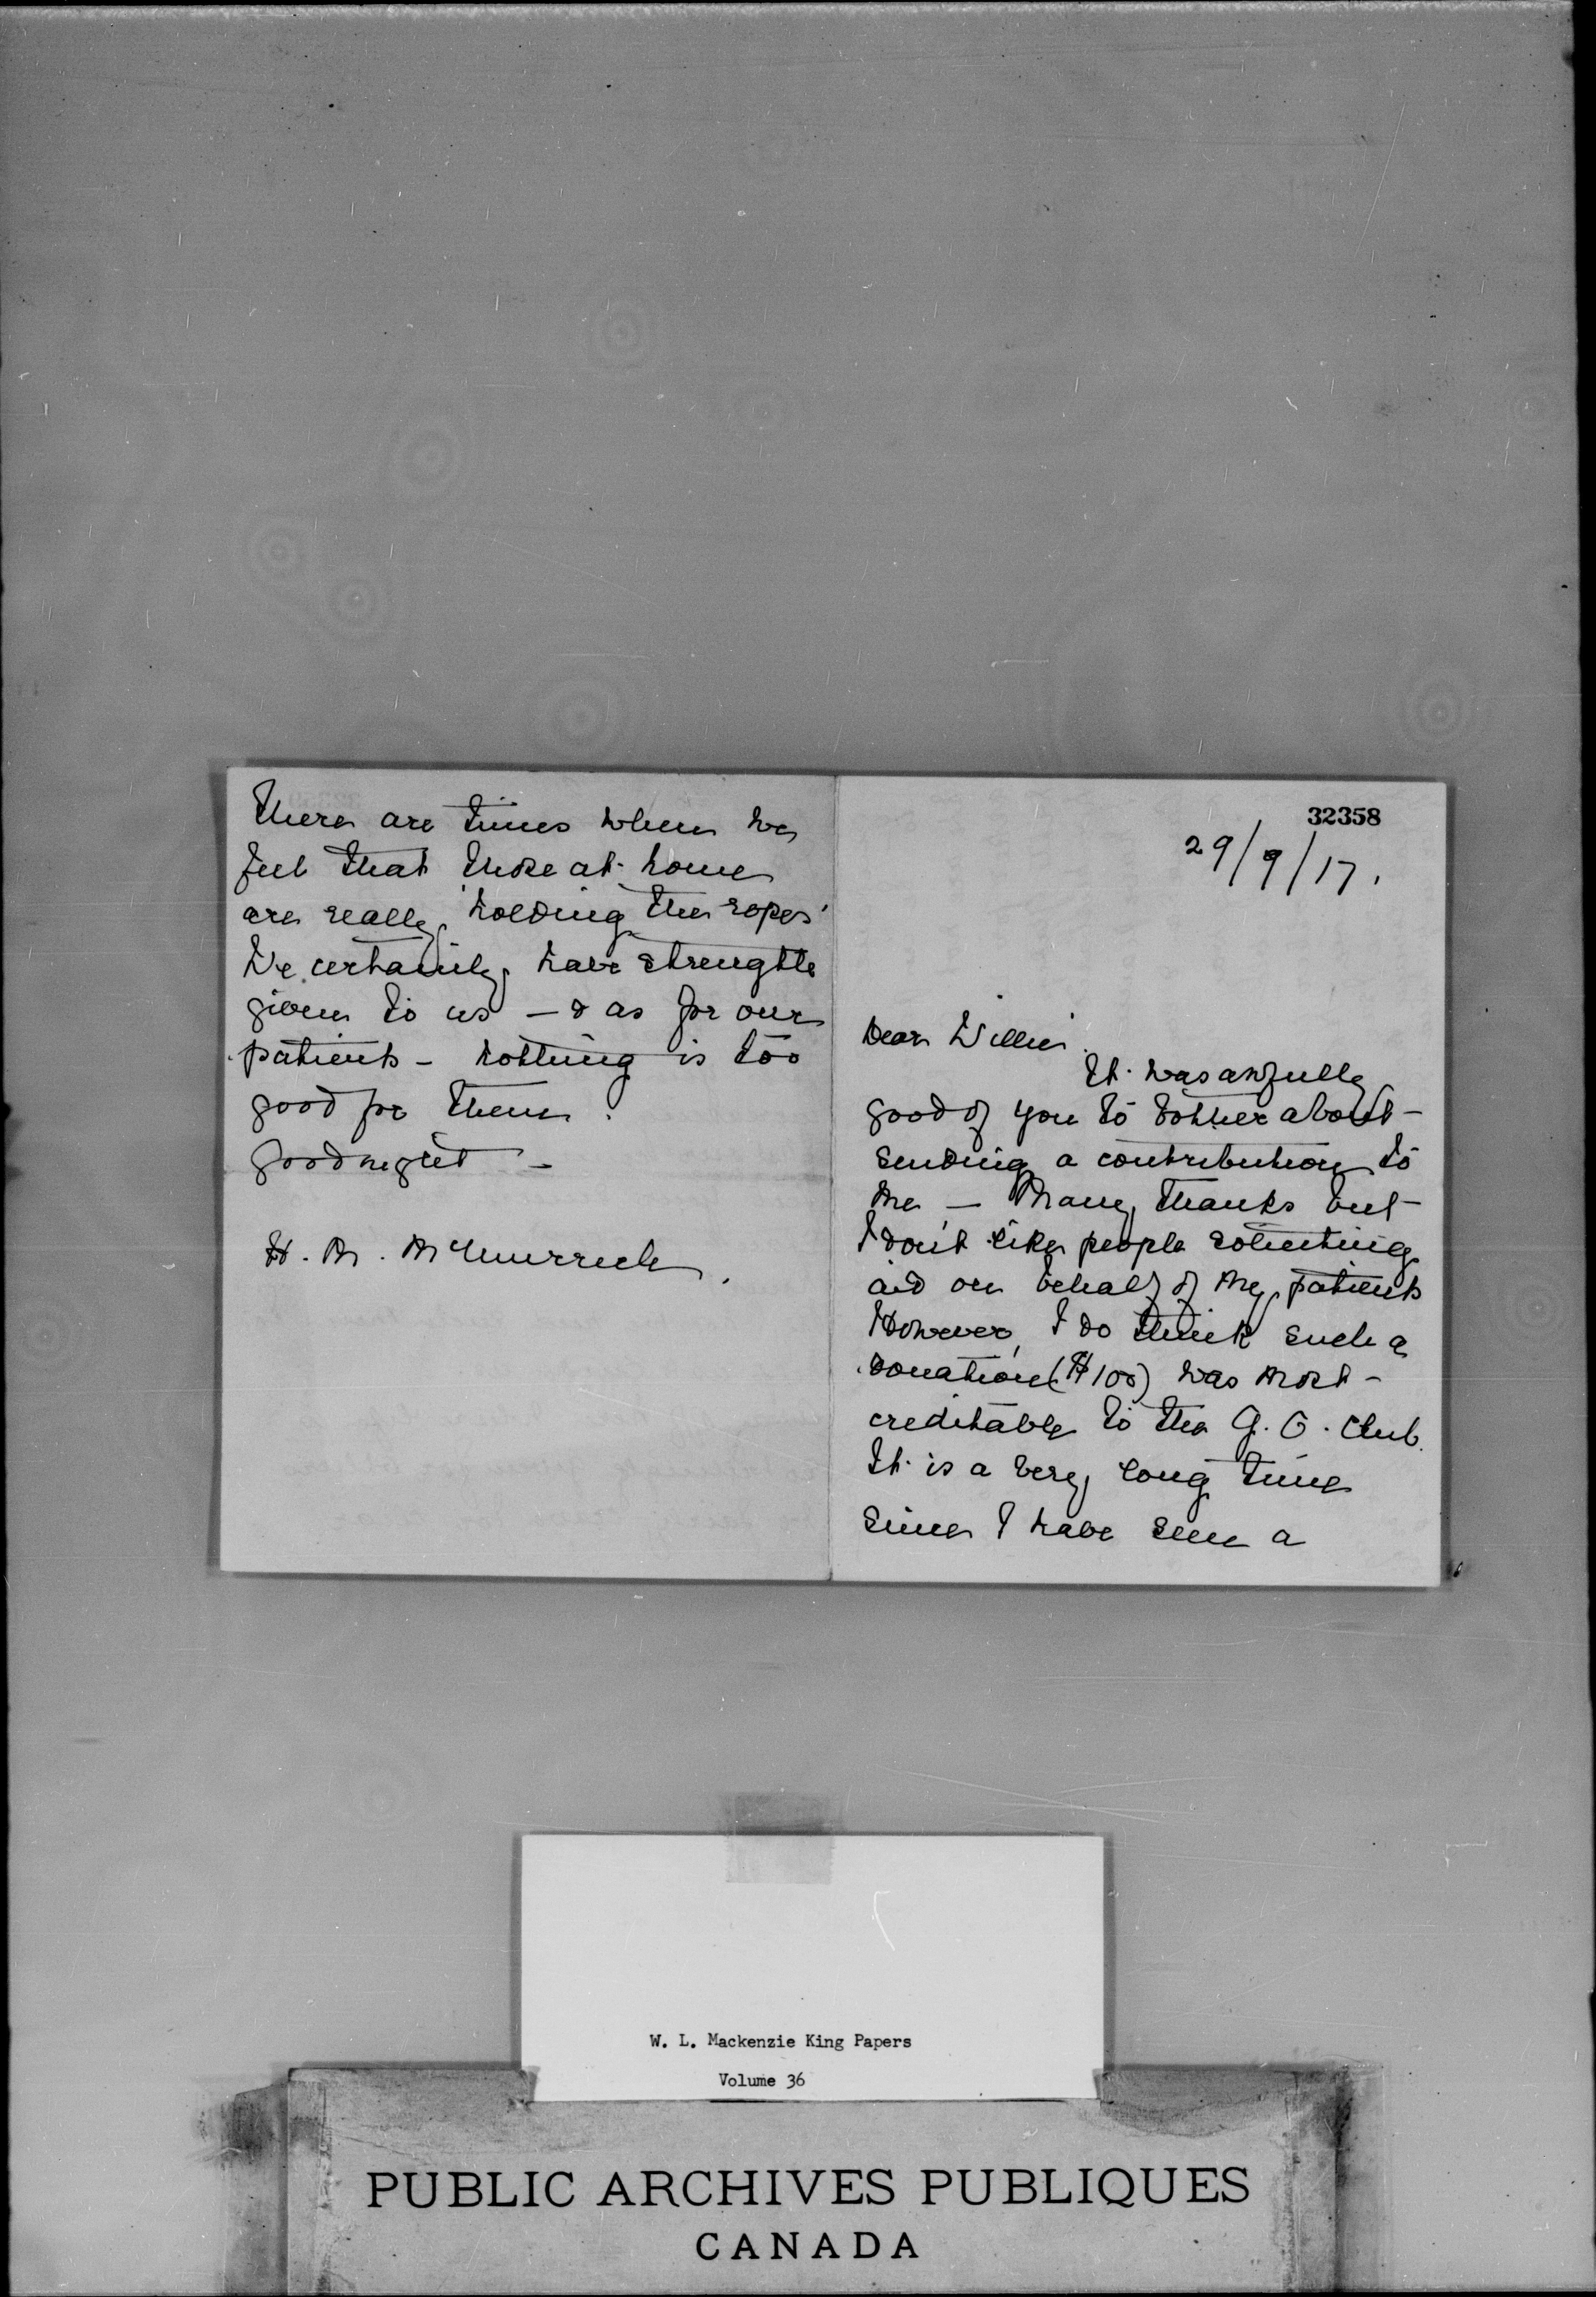 There are times when we
feel that those at home
are really 'holding the ropes'
We certainly have strength
given to us — & as for our
patients — nothing is too
good for them.
Goodnight —
H. M. McMurrich.
32358
29/9/17.
Dear Willie.
It was awfully
good of you to bother about
sending a contribution to
me — Many thanks but
I don't like people soliciting
aid on behalf of my patients
However, I do think such a
donation ($100) was most
creditable to the G. O. Club.
It is a very long time
since I have seen a
W. L. Mackenzie King Papers
Volume 36
PUBLIC ARCHIVES PUBLIQUES
CANADA